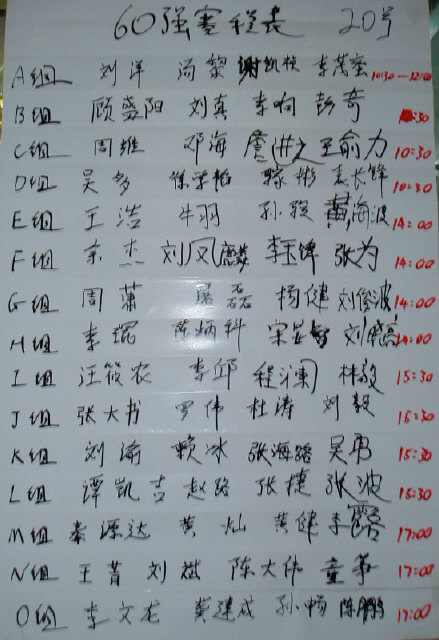 60强赛程表 20号
A组 刘洋 汤黎 谢凯枝 李茂蛮 10:30-12:00
B组 顾盛阳 刘真 李响 彭奇 :30
C组 周维 邓海 詹洪文 王俞力 10:30
D组 吴多 徐荣 彬 袁长锋 10:30
E组 王浩 牛羽 孙毅 黄海波 14:00
F组 余杰 刘凤麟 李玉锋 张为 14:00
G组 周萧 磊 杨健 刘俊波 14:00
H组 李琨 陈炳科 宋 刘 14:00
I组 汪筱农 李邱 程澜 林毅 15:30
J组 张大书 罗伟 杜涛 刘毅 15:30
K组 刘瑜 赖冰 张海路 吴勇 15:30
L组 谭凯吉 赵路 张捷 张波 15:30
M组 秦源达 黄灿 黄健 李露 17:00
N组 王菁 刘斌 陈大伟 董華 17:00
O组 李文龙 龚建成 孙畅 陈鹏 17:00